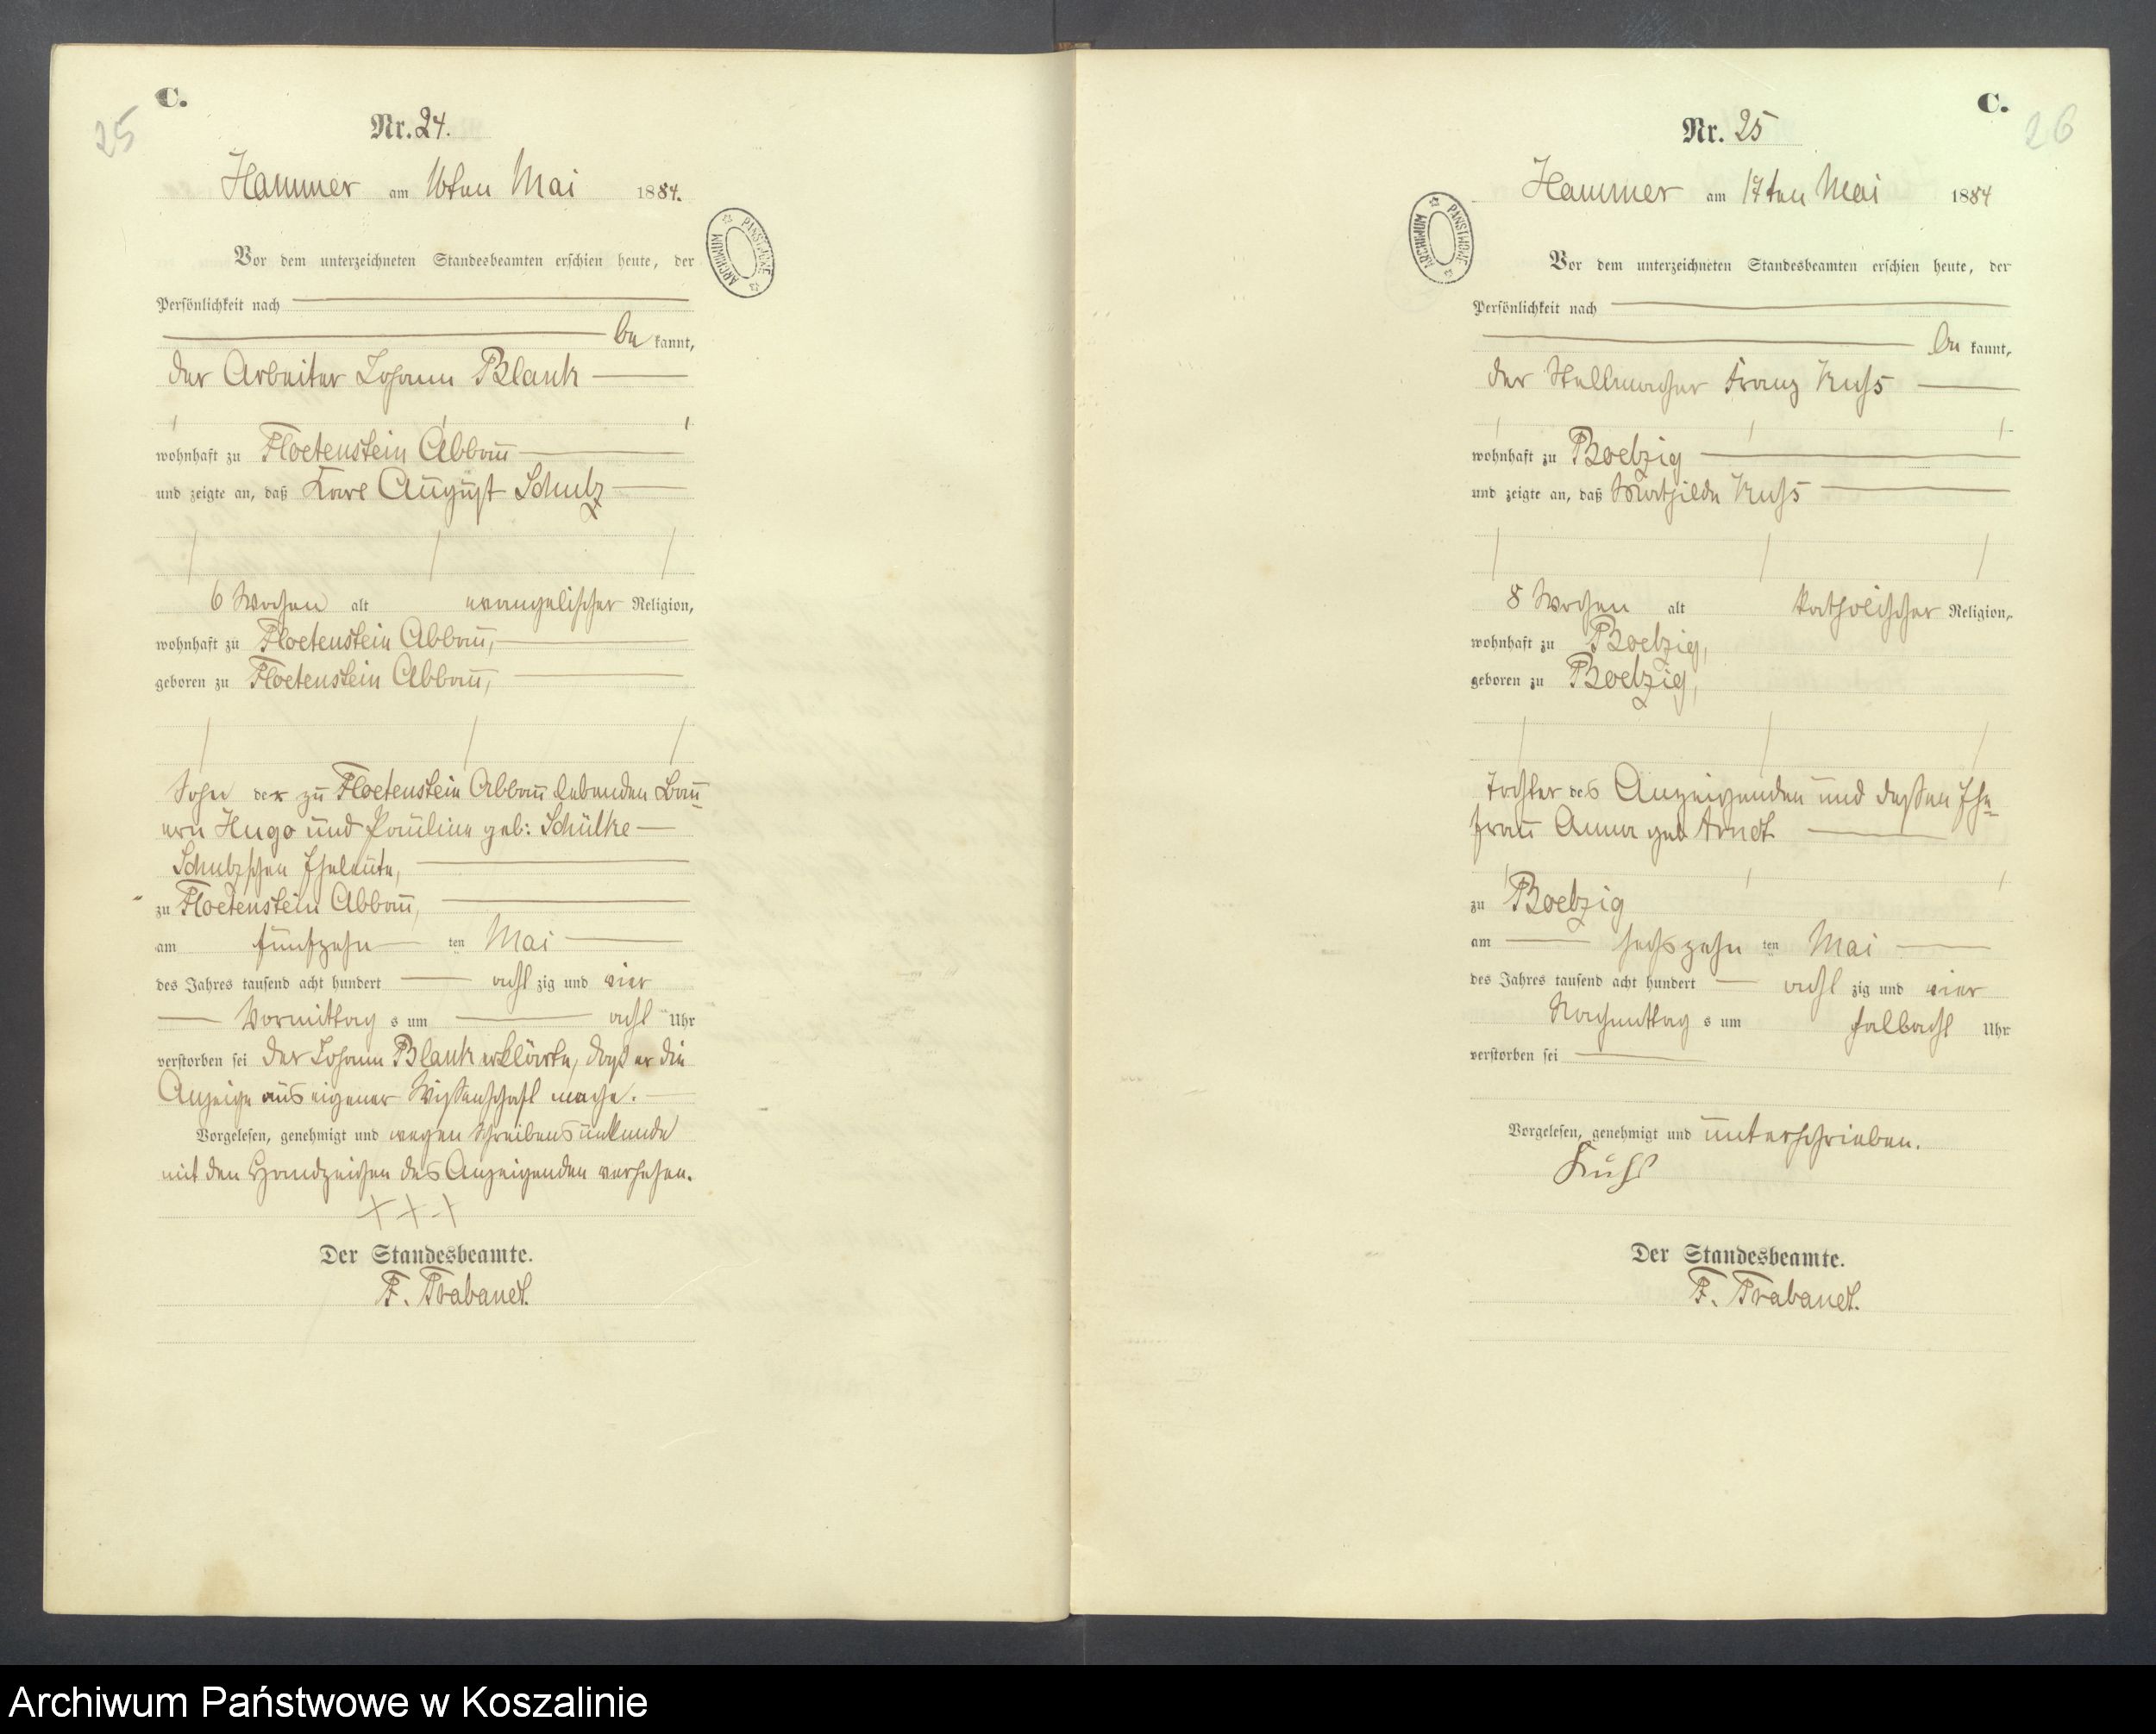 25
C.
Nr. 24.
Hammer am 16ten Mai 1884.
Vor dem unterzeichneten Standesbeamten erschien heute, der
Persönlichkeit nach
be kannt,
der Arbeiter Johann Blank
wohnhaft zu Floetenstein Abbau
und zeigte an, daß Karl August Schulz
6 Wochen alt evangelischer Religion,
wohnhaft zu Floetenstein Abbau,
geboren zu Floetenstein Abbau,
Sohn der zu Floetenstein Abbau lebenden Bau-
ern Hugo und Pauline geb: Schülke
Schulzschen Eheleute,
zu Floetenstein Abbau,
am fünfzehn ten Mai
des Jahres tausend acht hundert acht zig und vier
Vormittag s um acht Uhr
verstorben sei der Johann Blank erklärte, daß er die
Anzeige aus eigener Wissenschaft mache.
Vorgelesen, genehmigt und wegen Schreibensunkunde
mit den Handzeichen des Anzeigenden versehen.
+++
Der Standesbeamte.
F. Trabandt.
ARCHIWUM PAŃSTWOWE
C.
26
Nr. 25
Hammer am 17ten Mai 1884
Vor dem unterzeichneten Standesbeamten erschien heute, der
Persönlichkeit nach
be kannt,
der Stellmacher Franz Kuhs
wohnhaft zu Boelzig
und zeigte an, daß Mathilde Kuhs
8 Wochen alt katholischer Religion,
wohnhaft zu Boelzig,
geboren zu Boelzig,
Tochter des Anzeigenden und dessen Ehe-
frau Anna geb Arndt
zu Boelzig
am sechszehn ten Mai
des Jahres tausend acht hundert acht zig und vier
Nachmittag s um halbacht Uhr
verstorben sei
Vorgelesen, genehmigt und unterschrieben.
Kuhs
Der Standesbeamte.
F. Trabandt.
ARCHIWUM PAŃSTWOWE
Archiwum Państwowe w Koszalinie